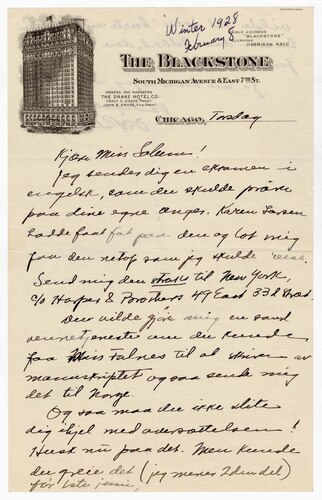 Winter 1928
February 8
CABLE ADDRESS
"BLACKSTONE"
TELEPHONE
HARRISON 4300
THE BLACKSTONE
SOUTH MICHIGAN AVENUE & EAST 7TH ST.
OWNERS AND MANAGERS
THE DRAKE HOTEL CO.
TRACY C. DRAKE PRES'T
JOHN B. DRAKE VICE PRES'T
CHICAGO, Torsdag
Kjære Miss Solum!
Jeg sender dig en eksamen i
engelsk, som du skulde prøve
paa dine egne unger. Karen Larsen
hadde faat fat paa den og lot mig
faa den netop som jeg skulde reise.
Send mig den straks til New York,
c/o Harper & Brothers 49 East 33d Street.
Du vilde gjøre mig en sand
vennetjeneste om du kunde
faa Miss til at skrive av
manuskriptet og saa sende mig
det til Norge.
Og saa maa du ikke slite
dig ihjel med oversættelsen!
Husk nu paa det. Men kunde
du greie det (jeg mener 2den del)
før 1ste juni,